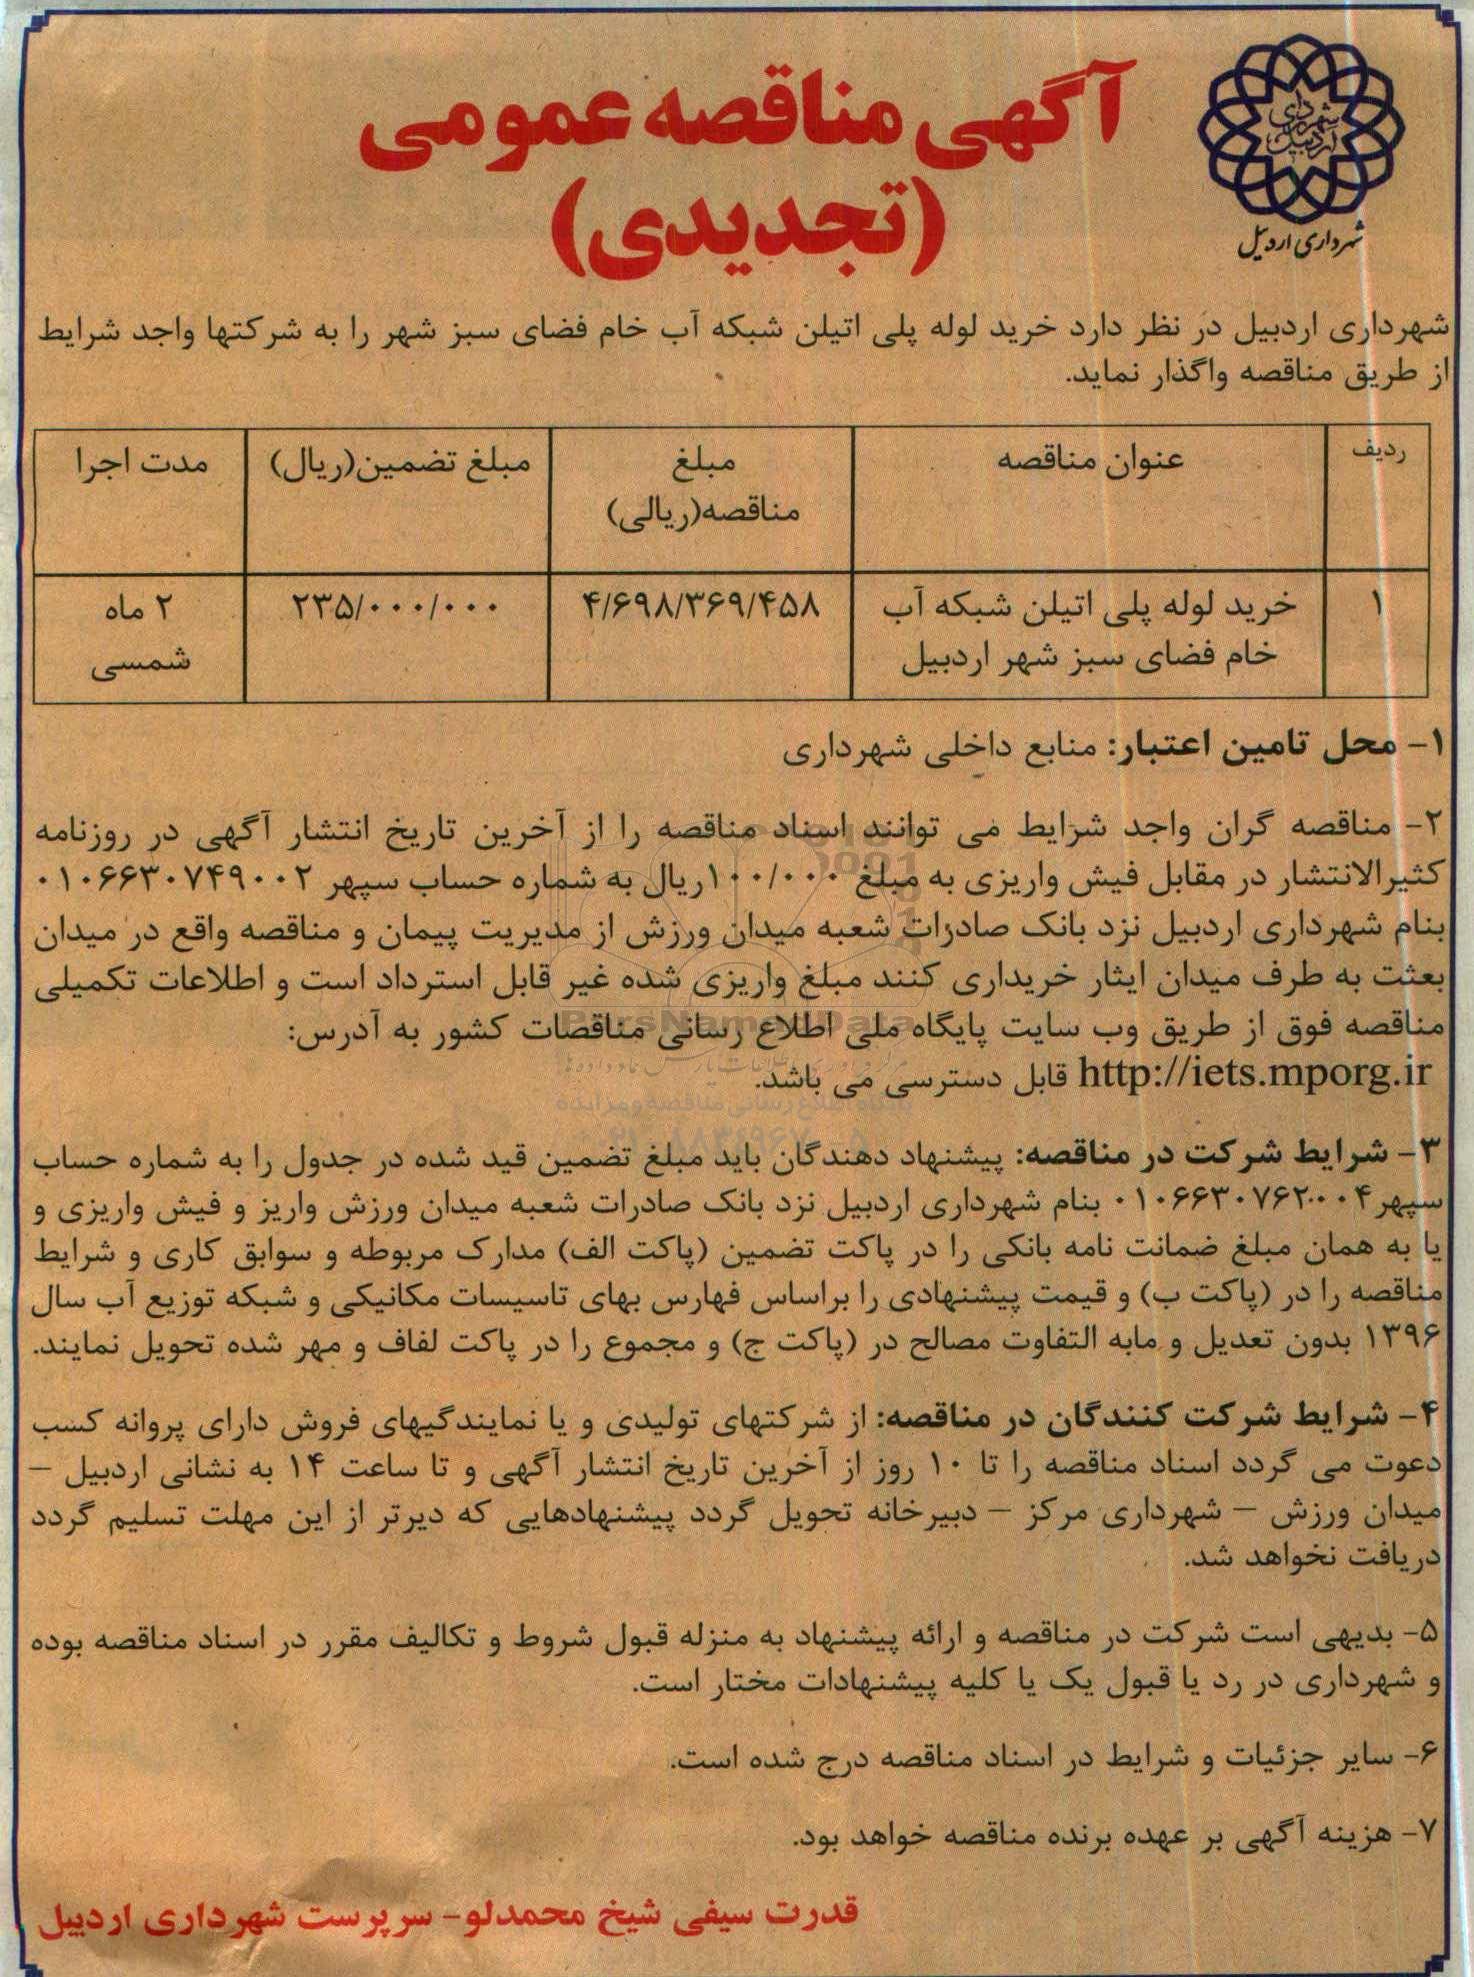 شهرداری اردبیل
آگهی مناقصه عمومی
(تجدیدی)
شهرداری اردبیل در نظر دارد خرید لوله پلی اتیلن شبکه آب خام فضای سبز شهر را به شرکتها واجد شرایط
از طریق مناقصه واگذار نماید.
ردیف عنوان مناقصه مبلغ مبلغ تضمین(ریال) مدت اجرا
مناقصه(ریالی)
۱ خرید لوله پلی اتیلن شبکه آب ۴/۶۹۸/۳۶۹/۴۵۸ ۲۳۵/۰۰۰/۰۰۰ ۲ ماه
خام فضای سبز شهر اردبیل شمسی
۱- محل تامین اعتبار: منابع داخلی شهرداری
۲- مناقصه گران واجد شرایط می توانند اسناد مناقصه را از آخرین تاریخ انتشار آگهی در روزنامه
کثیرالانتشار در مقابل فیش واریزی به مبلغ ۱۰۰/۰۰۰ریال به شماره حساب سپهر ۰۱۰۶۶۳۰۷۴۹۰۰۲
بنام شهرداری اردبیل نزد بانک صادرات شعبه میدان ورزش از مدیریت پیمان و مناقصه واقع در میدان
بعثت به طرف میدان ایثار خریداری کنند مبلغ واریزی شده غیر قابل استرداد است و اطلاعات تکمیلی
مناقصه فوق از طریق وب سایت پایگاه ملی اطلاع رسانی مناقصات کشور به آدرس:
http://iets.mporg.ir قابل دسترسی می باشد.
۳- شرایط شرکت در مناقصه: پیشنهاد دهندگان باید مبلغ تضمین قید شده در جدول را به شماره حساب
سپهر۰۱۰۶۶۳۰۷۶۲۰۰۴ بنام شهرداری اردبیل نزد بانک صادرات شعبه میدان ورزش واریز و فیش واریزی و
یا به همان مبلغ ضمانت نامه بانکی را در پاکت تضمین (پاکت الف) مدارک مربوطه و سوابق کاری و شرایط
مناقصه را در (پاکت ب) و قیمت پیشنهادی را براساس فهارس بهای تاسیسات مکانیکی و شبکه توزیع آب سال
۱۳۹۶ بدون تعدیل و مابه التفاوت مصالح در (پاکت ج) و مجموع را در پاکت لفاف و مهر شده تحویل نمایند.
۴- شرایط شرکت کنندگان در مناقصه: از شرکتهای تولیدی و یا نمایندگیهای فروش دارای پروانه کسب
دعوت می گردد اسناد مناقصه را تا ۱۰ روز از آخرین تاریخ انتشار آگهی و تا ساعت ۱۴ به نشانی اردبیل –
میدان ورزش – شهرداری مرکز – دبیرخانه تحویل گردد پیشنهادهایی که دیرتر از این مهلت تسلیم گردد
دریافت نخواهد شد.
۵- بدیهی است شرکت در مناقصه و ارائه پیشنهاد به منزله قبول شروط و تکالیف مقرر در اسناد مناقصه بوده
و شهرداری در رد یا قبول یک یا کلیه پیشنهادات مختار است.
۶- سایر جزئیات و شرایط در اسناد مناقصه درج شده است.
۷- هزینه آگهی بر عهده برنده مناقصه خواهد بود.
قدرت سیفی شیخ محمدلو- سرپرست شهرداری اردبیل